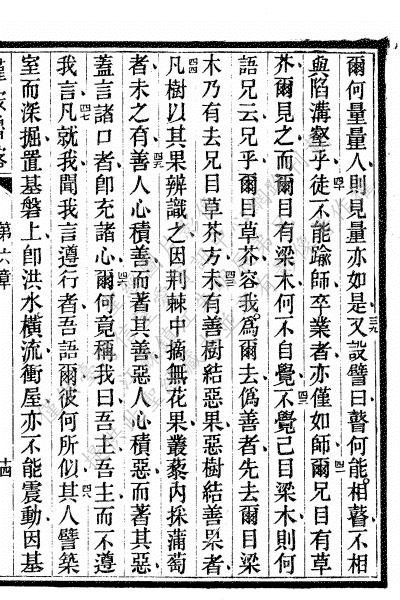 爾何量量人則見量亦如是又設譬曰瞽何能相瞽不相
與陷溝壑乎徒不能踰師卒業者亦僅如師爾兄目有草
芥爾見之而爾目有梁木何不自覺不覺己目梁木則何
語兄云兄乎爾目草芥容我爲爾去僞善者先去爾目梁
木乃有去兄目草芥方未有善樹結惡果惡樹結善果者
凡樹以其果辨識之因荆棘中摘無花果叢藜內採蒲萄
者未之有善人心積善而著其善惡人心積惡而著其惡
蓋言諸口者卽充諸心爾何竟稱我曰吾主吾主而不遵
我言凡就我聞我言遵行者吾語爾彼何所似其人譬築
室而深掘置基磐上卽洪水橫流衝屋亦不能震動因基
第六章
十四
三九
四十
四一
四二
四三
四四
四五
四六
四七
四八